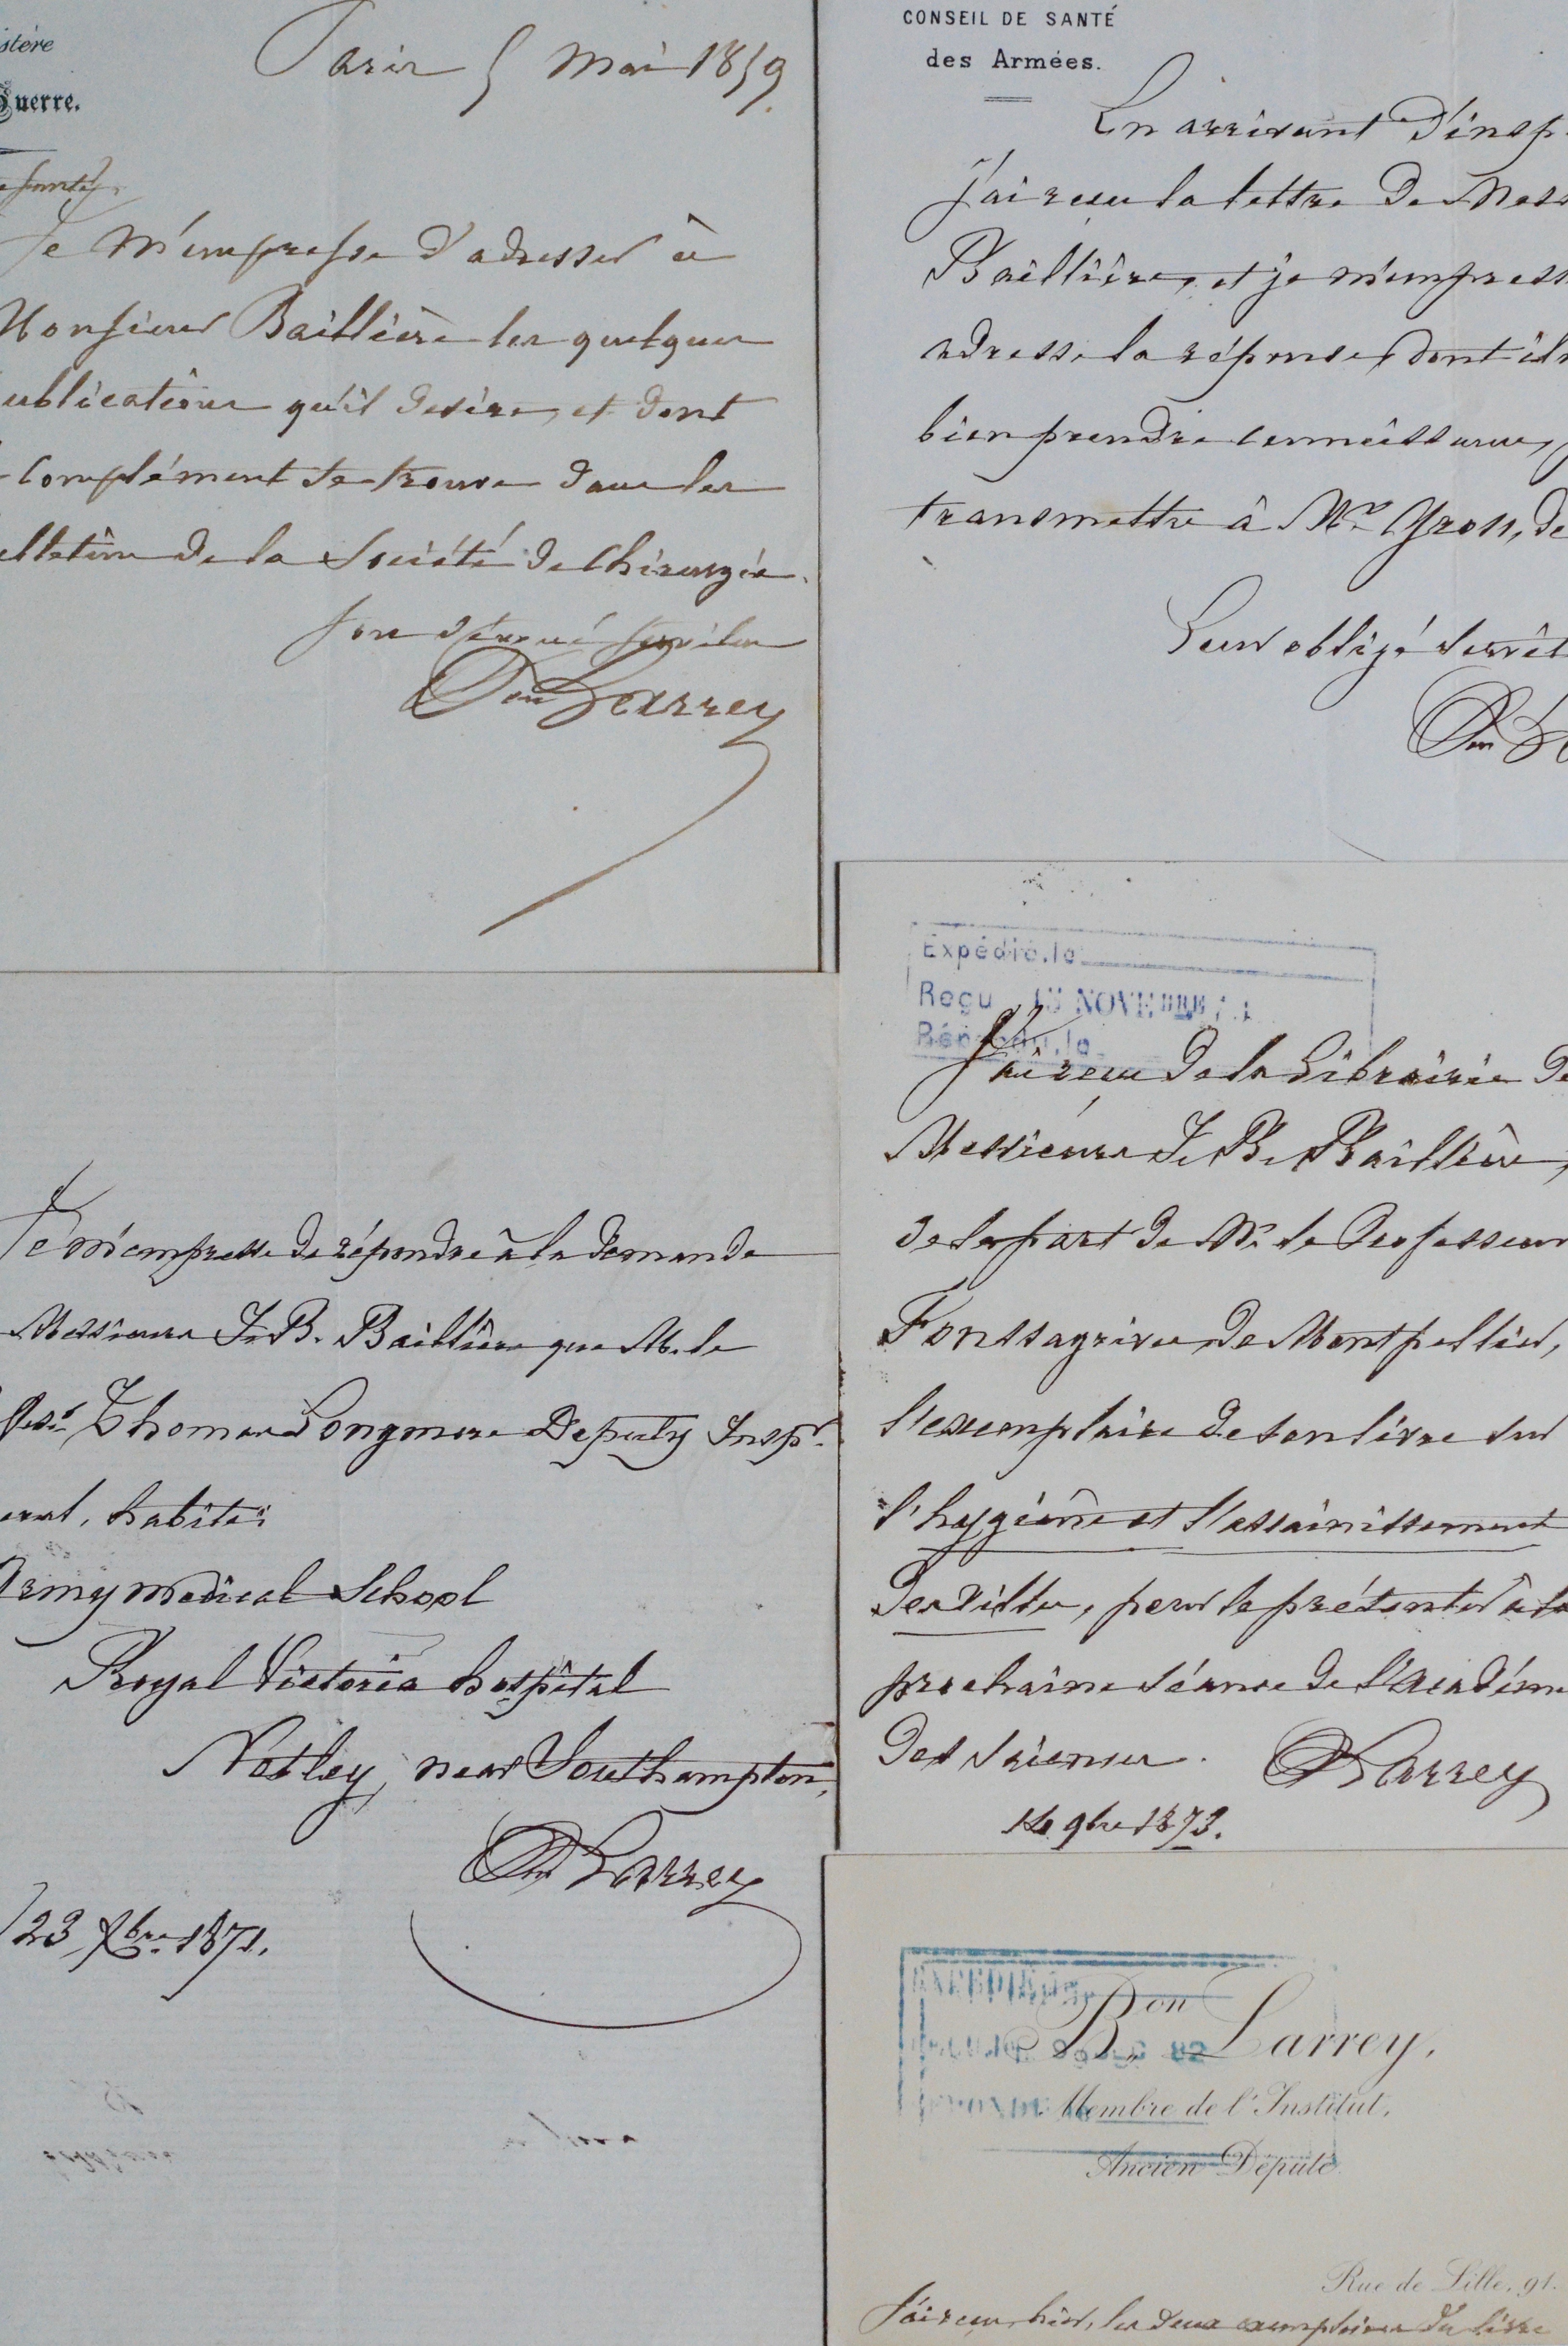 stère
Guerre.
Paris 5 Mai 1859.
Je m'empresse d'adresser à
Monsieur Baillière les quelques
ublications qu'il désire, et dont
complément se trouve dans les
ulletins de la Société de Chirurgie.
son dévoué serviteur
Bon Larrey
CONSEIL DE SANTÉ
des Armées.
En arrivant d'insp
j'ai reçu la lettre de Mess
Baillière, et je m'empress
adresse la réponse, dont ils
bien prendre connaissance,
transmettre à Mr. Gross, de
Leur obligé servit
Bon L
Je m'empresse de répondre à la demande
Messieurs J. B. Baillière que M. le
Thomas Longmore Deputy Inspr.
eral, habite:
Army medical School
Royal Victoria hospital
Netley, near Southampton,
Bon Larrey
23 Xbre 1871.
Expédié, le
Reçu 15 NOVEMBRE
Répondu, le
J'ai reçu de la Librairie de
Messieurs J. B. Baillière,
de la part de Mr. le Professeur
Fonssagrives, de Montpellier,
l'exemplaire de son livre sur
l'hygiène et l'assainissement
des villes, pour le présenter à la
prochaine séance de l'Académie
des Sciences.
Bon Larrey
14 9bre 1873.
Bon Larrey,
Membre de l'Institut,
Ancien Député
Rue de Lille, 91.
J'ai reçu, hier, les deux exemplaires du livre